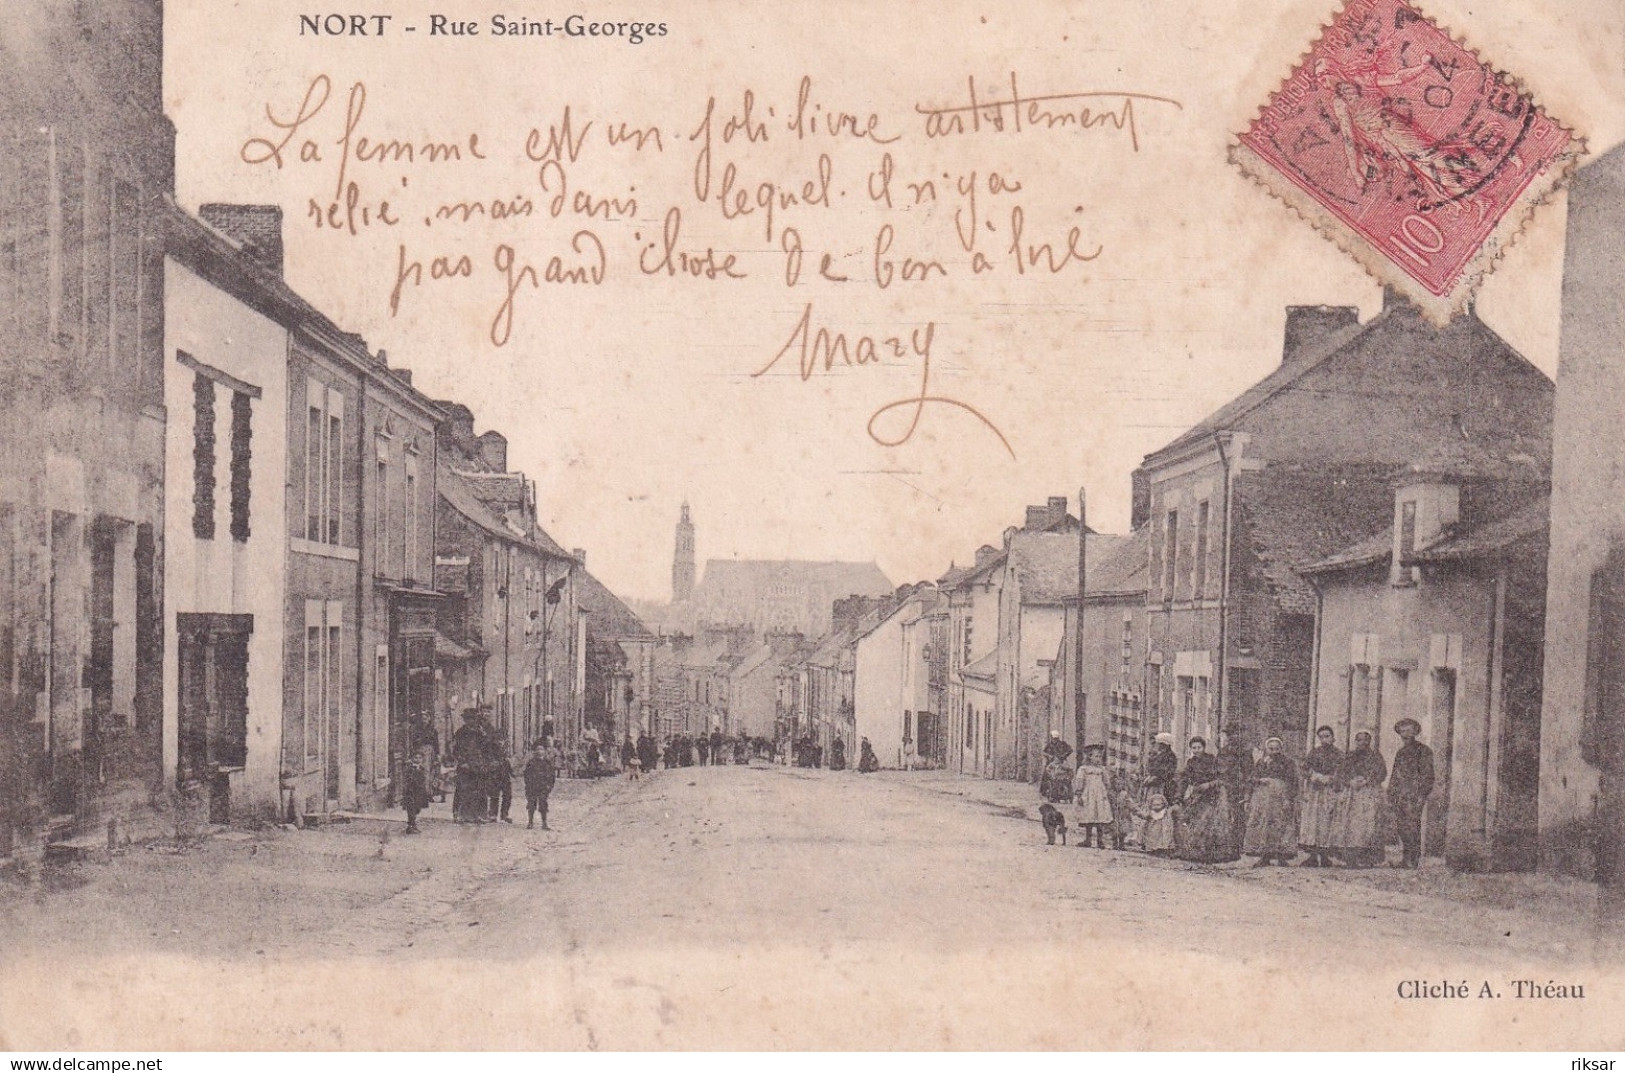 NORT - Rue Saint-Georges
La femme est un joli livre artistement
relié, mais dans lequel il n'y a
pas grand'chose de bon à lire
Mary
RÉPUBLIQUE FRANÇAISE
10
04
Cliché A. Théau
http://www.delcampe.net
riksar